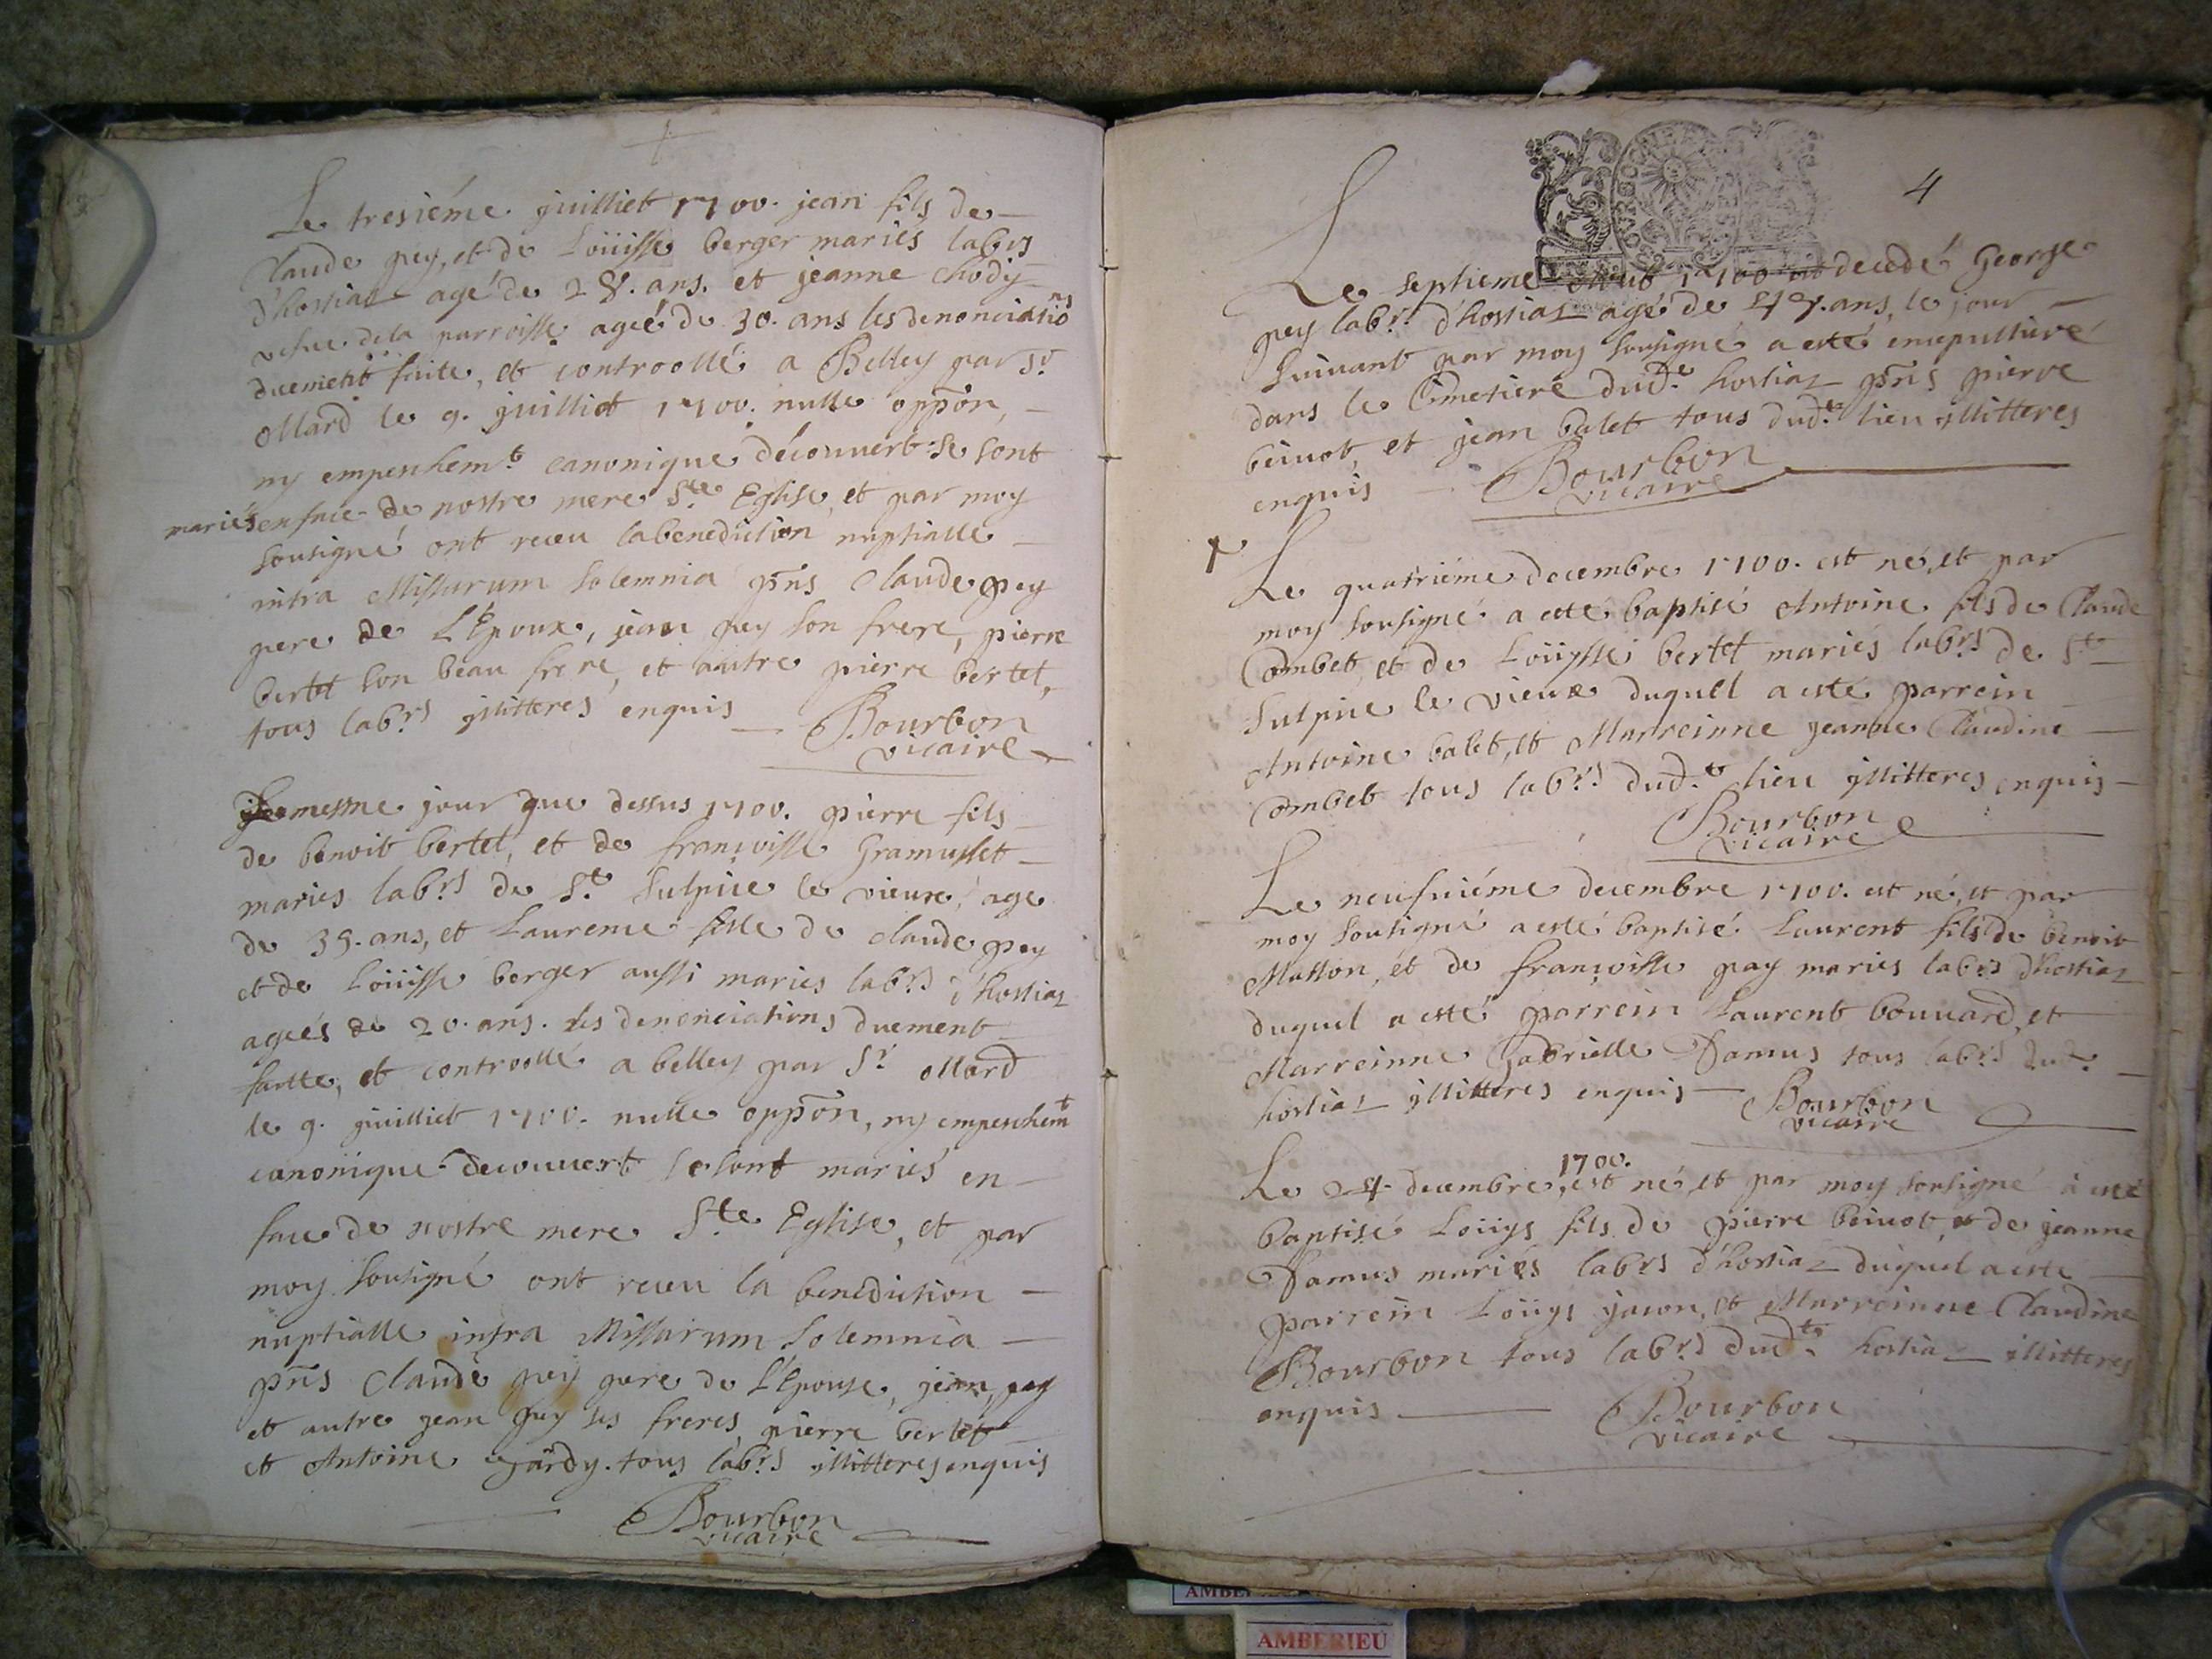 Le tresiéme juilliet 1700. jean fils de
Claude pey, et de Loüisse berger mariés labrs
d'hostiaz agé de 28. ans. et jeanne Chody
vefue dela parroisse ageé de 30. ans les denonciatiōns
duement faite, et controollé a Belley par Sr.
ollard le 9. juilliet 1700. nulle oppōn,
ny empeschemt. canonique découuert se sont
mariés enface de nostre mere Ste. Eglise, et par moy
sousigné ont receu labenediction nuptialle
intra Missarum solemnia pn̄s Claude pey
pere de L'Epoux, jean pey son frere, pierre
bertet son beau frere, et autre pierre bertet,
tous labrs. jllitteres enquis
Bourbon
vicaire
Le mesme jour que dessus 1700. pierre fils
de benoit bertet, et de françoisse Gramusset
maries labrs. de St. Sulpice le vieux, age
de 35. ans, et Laurence fille de claude pey
et de Loüisse berger aussi maries labrs. d'hostiaz
ageés de 20. ans. les denonciations duement
faitte, et controollé a belley par Sr. ollard
le 9. juilliet 1700. nulle oppōn, ny empeschemt
canonique decouuert se sont mariés en
face de nostre mere Ste. Eglise, et par
moy sousigné ont receu la benediction
nuptialle infra Missarum solemnia
pn̄s Claude pey pere de L'Epouse, jean pey
et autre jean pey ses freres, pierre bertet
et Antoine gardy. tous labrs. jllitteres enquis
Bourbon
vicaire
4
Le septieme 1700 est decedé George
pey labr. d'hostiaz agé de 47. ans, le jour
suiuant par moy sousigné a esté ensepulturé
dans le Cimetiere dudt. hostiaz pn̄s pierre
beinot, et jean balet tous dudt. lieu jllitteres
enquis
Bourbon
vicaire
Le quatriéme decembre 1700. est né, et par
moy sousigné a eté baptisé Antoine fils de Claude
Combet, et de Loüysse bertet mariés labrs. de St.
Sulpice le vieux duquel a esté parrein
Antoine balet, et Marreinne jeanne Claudine
Combet tous labrs. dudt. lieu jllitteres enquis
Bourbon
vicaire
Le neufuiéme decembre 1700. est né, et par
moy sousigné a esté baptisé Laurent fils de benoit
Masson, et de françoisse pay maries labrs. d'hostiaz
duquel a esté parrein Laurent bouuard, et
Marreinne Gabrielle Famus tous labrs. dudt.
hostiaz jllitteres enquis
Bourbon
vicaire
1700.
Le 24. decembre, est né, et par moy sousigné à esté
baptisé Loüys fils de pierre beinot, et de jeanne
Famus mariés labrs. d'hostiaz duquel a esté
parrein Loüys jacon, et Marreinne Claudine
Bourbon tous labrs. dudt. hostiaz illitteres
enquis
Bourbon
vicaire
AMBERIEU